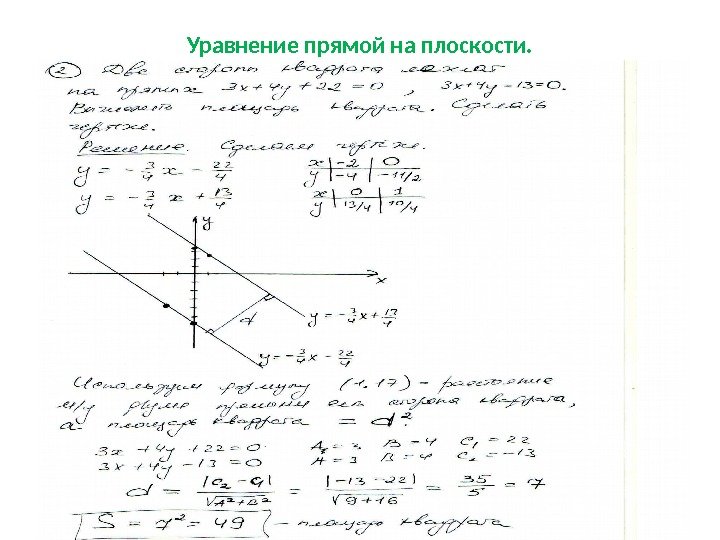 Уравнение прямой на плоскости.
② Две стороны квадрата лежат
на прямых 3x+4y+22=0, 3x+4y-13=0.
Вычислить площадь квадрата. Сделать
чертеж.
Решение. Сделаем чертеж.
y = -3/4 x - 22/4
x | -2 | 0
y | -4 | -11/2
y = -3/4 x + 13/4
x | 0 | 1
y | 13/4 | 10/4
y
x
d
y = -3/4 x + 13/4
y = -3/4 x - 22/4
Используем формулу (1.17) - расстояние
м/у двумя прямыми есть сторона квадрата,
а площадь квадрата = d².
3x + 4y + 22 = 0 A = 3 B = 4 C₁ = 22
3x + 4y - 13 = 0 A = 3 B = 4 C₂ = -13
d = |C₂ - C₁| / √A²+B² = |-13 - 22| / √9+16 = 35/5 = 7
S = 7² = 49 - площадь квадрата